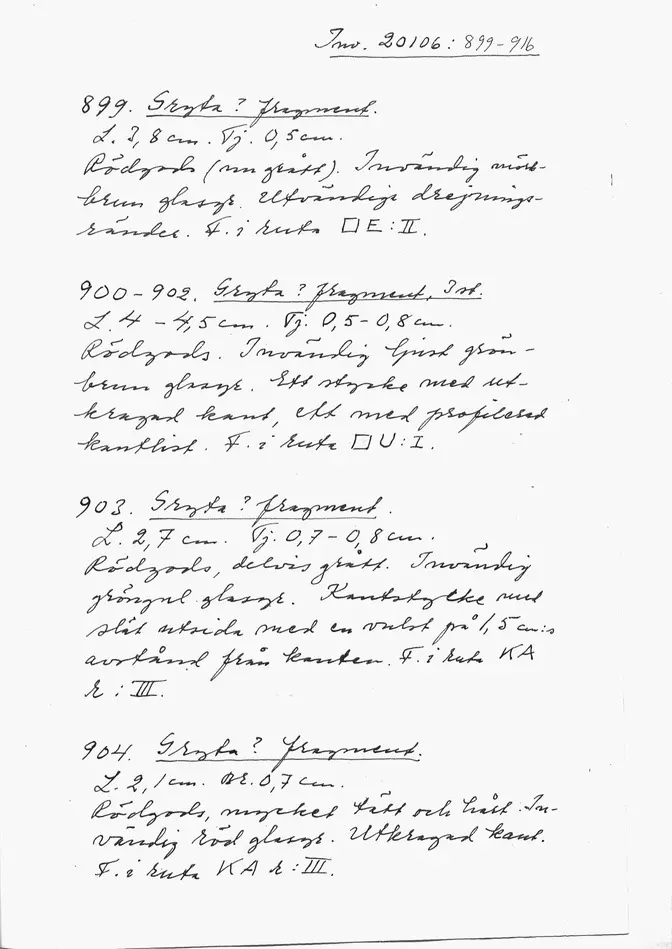 Inv. 20106: 899-916
899. Gryta? fragment.
L. 3,8 cm. Tj. 0,5 cm.
Rödgods (nu grått). Invändig mörk-
brun glasyr. Utvändiga drejnings-
ränder. F. i ruta □ E:II.
900-902. Gryta? fragment, 3 st.
L. 4 - 4,5 cm. Tj. 0,5-0,8 cm.
Rödgods. Invändig ljust grön-
brun glasyr. Ett stycke med ut-
kragad kant, ett med profilerad
kantlist. F. i ruta □ U:I.
903. Gryta? fragment.
L. 2,7 cm. Tj. 0,7-0,8 cm.
Rödgods, delvis grått. Invändig
gröngul glasyr. Kantstycke med
slät utsida med en vulst på 1,5 cm:s
avstånd från kanten. F. i ruta KA
r:III.
904. Gryta? fragment.
L. 2,1 cm. Br. 0,7 cm.
Rödgods, mycket tätt och hårt. In-
vändig röd glasyr. Utkragad kant.
F. i ruta KA r:III.